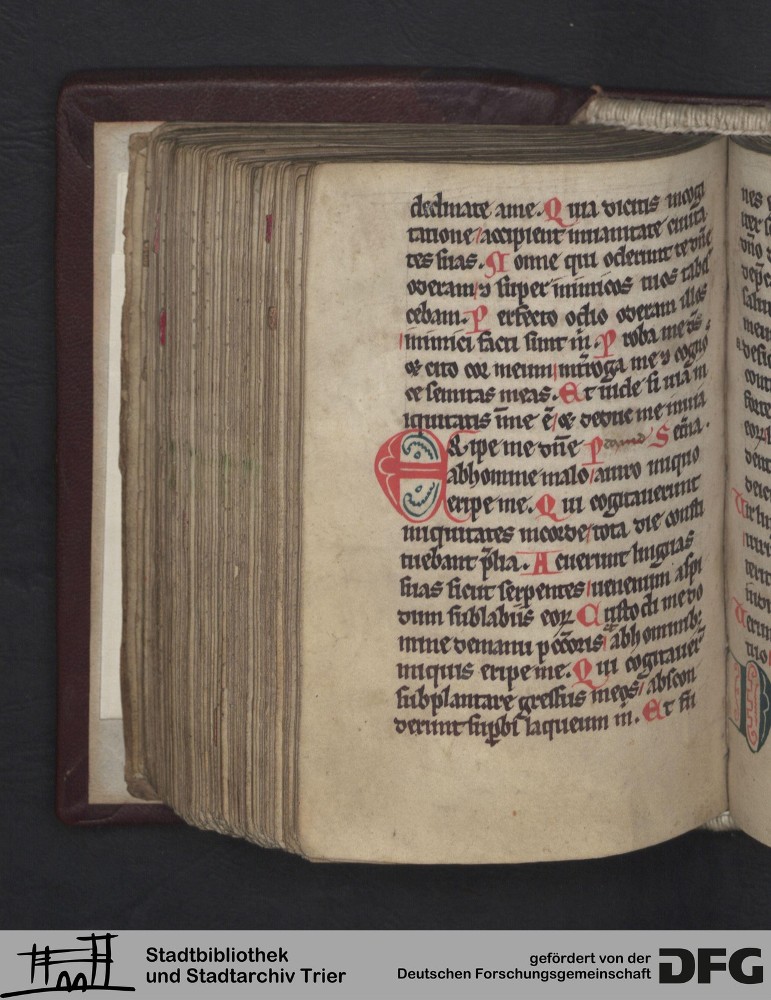 declinate ame. Quia dicitis incogi
tatione/accipient inuanitate ciuita
tes suas. Nonne qui oderunt te dn̄e
oderam/⁊ super inimicos tuos tabes
cebam. Perfecto odio oderam illos
/inimici facti sunt m̄. Proba me ds̄.
⁊ cito cor meum/int̄roga me ⁊ cogno
sce semitas meas. Et uide si uia m̄
iquitatis inme ē/⁊ deduc me inuia
Eripe me dn̄e P Sctn̄a.
abhomine malo/auiro iniquo
eripe me. Qui cogitauerunt
iniquitates incorde/tota die consti
tuebant p̄lia. Acuerunt linguas
suas sicut serpentes/uenenum aspi
dum sublabiis eoꝝ Custodi me do
mine demanu pccōris/abhominibꝫ
iniquis eripe me. Qui cogitauer̄
subplantare gressus meos/abscon
derunt suꝑbi laqueum m̄. Et fu
Stadtbibliothek
und Stadtarchiv Trier
gefördert von der
Deutschen Forschungsgemeinschaft
DFG